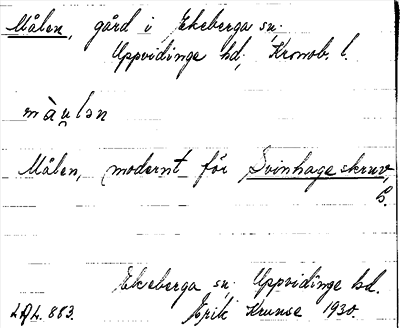 Målen, gård i Ekeberga sn.
Uppvidinge hd, Kronob. l.
màu̯lən
Målen, modernt för Svinhageskruv,
Ekeberga sn. Uppvidinge hd.
Erik Krunse 1930.